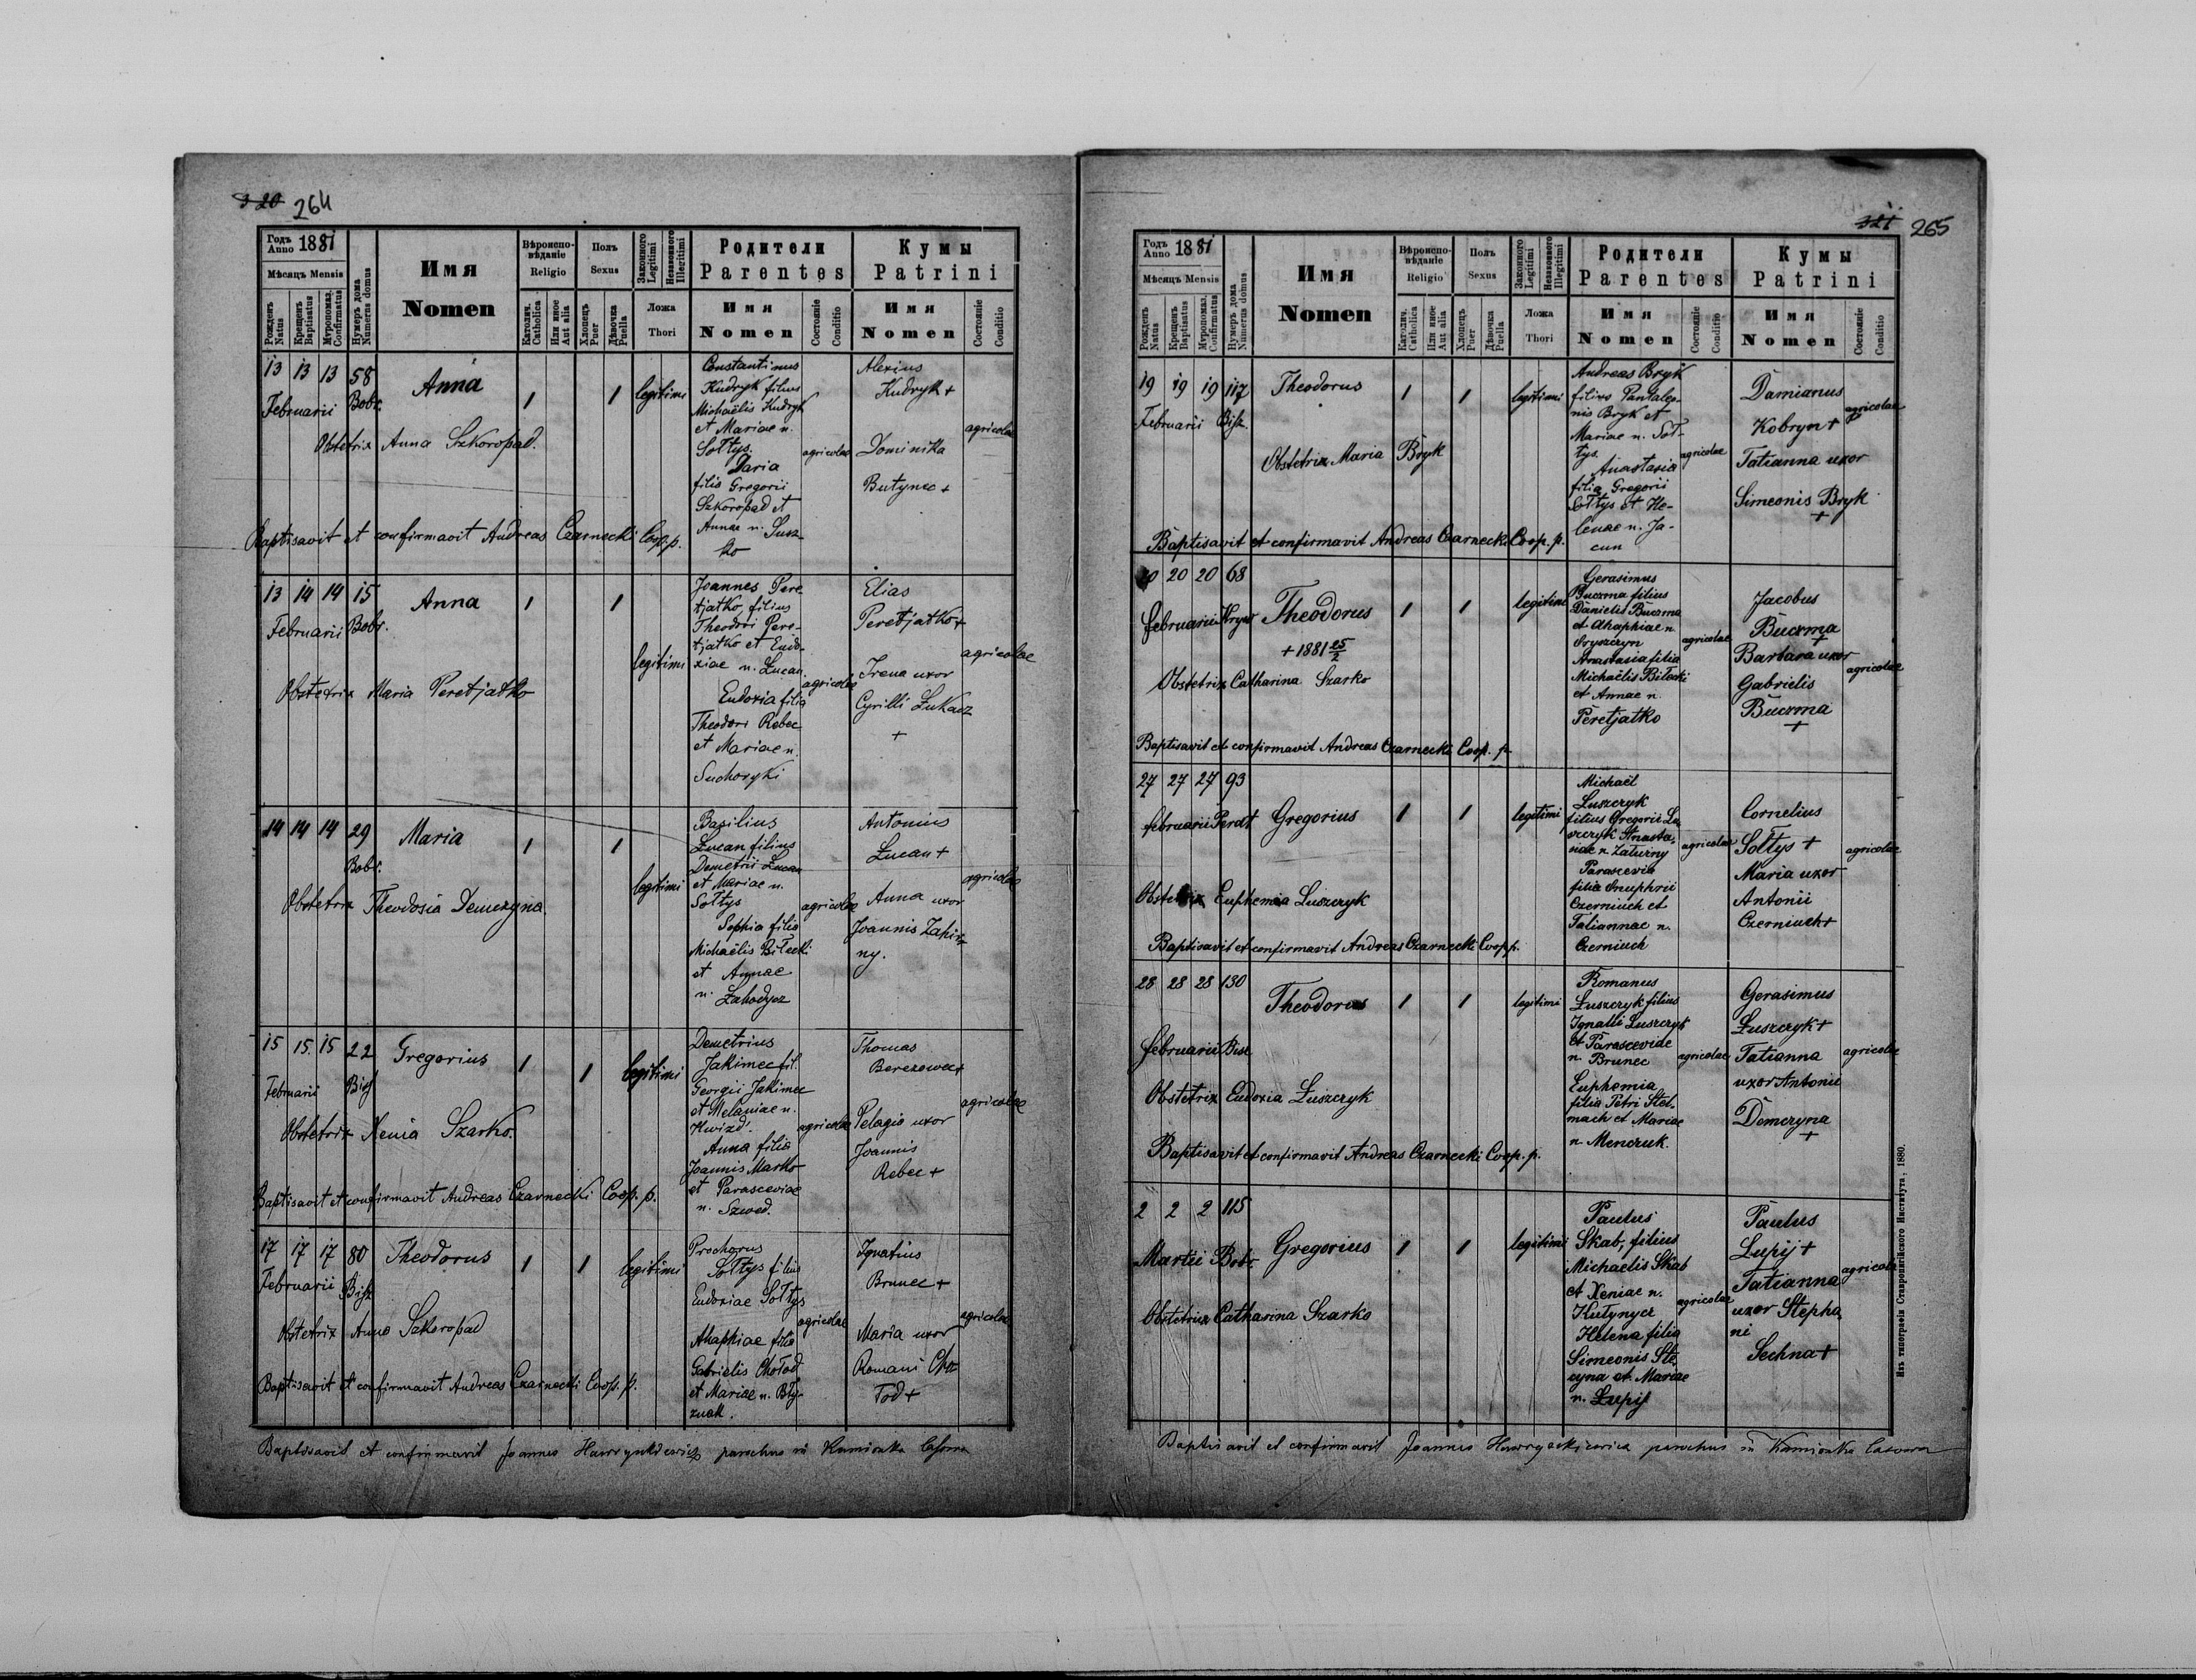 320 264
Годъ Anno 1881
Мѣсяцъ Mensis
Рожденъ Natus
Крещенъ Baptisatus
Муропомаз. Confirmatus
Нумеръ дома Numerus domus
Имя Nomen
Вѣроиспо-вѣданіе Religio
Католич. Catholica
Или иное Aut alia
Полъ Sexus
Хлопецъ Puer
Дѣвочка Puella
Законного Legitimi
Незаконного Illegitimi
Ложа Thori
Родители Parentes
Имя Nomen
Состояніе Conditio
Кумы Patrini
Имя Nomen
Состояніе Conditio
13 13 13 58
Februarii Bobr.
Anna
1 1 legitimi
Obstetrix Anna Szkoropad.
Constantinus
Kudryk filius
Michaëlis Kudryk
et Mariae n.
Sołtys.
Daria
filia Gregorii
Szkoropad et
Annae n. Susz-
ko
agricolae
Alexius
Kudryk +
Dominika
Butynec +
agricolae
Baptisavit et confirmavit Andreas Czarnecki Coop. p.
13 14 14 15
Februarii Bobr.
Anna
1 1 legitimi
Obstetrix Maria Peretjatko
Joannes Pere
tjatko, filius
Theodori Pere-
tjatko et Eudo-
xiae n. Łucan.
Eudoxia filia
Theodori Rebec
et Mariae n.
Suchoryki
agricolae
Elias
Peretjatko +
Irena uxor
Cyrilli Łukacz
+
agricolae
14 14 14 29
Bobr.
Maria
1 1 legitimi
Obstetrix Theodosia Demczyna
Basilius
Łucan filius
Demetrii Łucan
et Mariae n.
Sołtys
Sophia filia
Michaëlis Biłecki
et Annae
n. Zahodycz
agricolae
Antonius
Łucan +
Anna uxor
Joannis Zahir-
ny.
agricolae
15 15. 15 22
Februarii Bisz
Gregorius
1 1 legitimi
Obstetrix Xenia Szarko.
Demetrius
Jakimec fil.
Georgii Jakimec
et Melaniae n.
Hwizd.
Anna filia
Joannis Marko
et Parasceviae
n. Szwed.
agricolae
Thomas
Berezowec +
Pelagia uxor
Joannis
Rebec +
agricolae
Baptisavit et confirmavit Andreas Czarnecki Coop. p.
17 17 17 80
Februarii Bisz
Theodorus
1 1 legitimi
Obstetrix Anna Szkoropad
Prochorus
Sołtys filius
Eudoxiae Sołtys
Ahaphiae filia
Gabrielis Chołod
et Mariae n. Bły-
znak.
agricolae
Ignatius
Brunec +
Maria uxor
Romani Cho-
łod +
agricolae
Baptisavit et confirmavit Andreas Czarnecki Coop. p.
Baptisavit et confirmavit Joannes Hawrynkiewicz parochus in Kamionka
321 265
Годъ Anno 1881
Мѣсяцъ Mensis
Рожденъ Natus
Крещенъ Baptisatus
Муропомаз. Confirmatus
Нумеръ дома Numerus domus
Имя Nomen
Вѣроиспо-вѣданіе Religio
Католич. Catholica
Или иное Aut alia
Полъ Sexus
Хлопецъ Puer
Дѣвочка Puella
Законного Legitimi
Незаконного Illegitimi
Ложа Thori
Родители Parentes
Имя Nomen
Состояніе Conditio
Кумы Patrini
Имя Nomen
Состояніе Conditio
19 19 19 117
Februarii Bisz.
Theodorus
1 1 legitimi
Obstetrix Maria Bryk
Andreas Bryk
filius Pantaleo-
nis Bryk et
Mariae n. Soł-
tys
Anastasia
filia Gregorii
Sołtys et He-
lenae n. Ja-
cun
agricolae
Damianus
Kobryn +
Tatianna uxor
Simeonis Bryk
+
agricolae
Baptisavit et confirmavit Andreas Czarnecki Coop. p.
20 20 20 68
Februarii
Theodorus
+ 1881 25/2
1 1 legitimi
Obstetrix Catharina Szarko
Gerasimus
Buczma filius
Danielis Buczma
et Ahaphiae n.
Anastasia filia
Michaëlis Biłecki
et Annae n.
Peretjatko
agricolae
Jacobus
Buczma
+
Barbara uxor
Gabrielis
Buczma
+
agricolae
Baptisavit et confirmavit Andreas Czarnecki Coop. p.
27 27 27 93
Februarii
Gregorius
1 1 legitimi
Obstetrix Euphemia Łuszczyk
Michaël
Łuszczyk
filius Gregorii Łu
szczyk Anasta-
siae n. Zaturny
Parascevia
filia Onuphrii
Czerniuch et
Tatiannae n.
Czerniuch
agricolae
Cornelius
Sołtys +
Maria uxor
Antonii
Czerniuch +
agricolae
Baptisavit et confirmavit Andreas Czarnecki Coop p.
28 28 28 130
Februarii Bisz
Theodorus
1 1 legitimi
Obstetrix Eudoxia Łuszczyk
Romanus
Łuszczyk filius
Ignatii Łuszczyk
et Parasceviae
n. Brunec
Euphemia
filia Petri Stel-
mach et Mariae
n. Menczuk.
agricolae
Gerasimus
Łuszczyk +
Tatianna
uxor Antonii
Demczyna
+
agricolae
Baptisavit et confirmavit Andreas Czarnecki Coop. p.
2 2 2 115
Martii Bobr.
Gregorius
1 1 legitimi
Obstetrix Catharina Szarko
Paulus
Skab, filius
Michaelis Skab
et Xeniae n.
Kutynycz
Helena filia
Simeonis Ste
cyna et Mariae
n. Łupij
agricolae
Paulus
Łupij +
Tatianna
uxor Stepha
ni
Sechna +
agricolae
Baptisavit et confirmavit Joannes Hawrynkiewicz parochus in Kamionka
Изъ типографіи Ставропигійского Института, 1880.